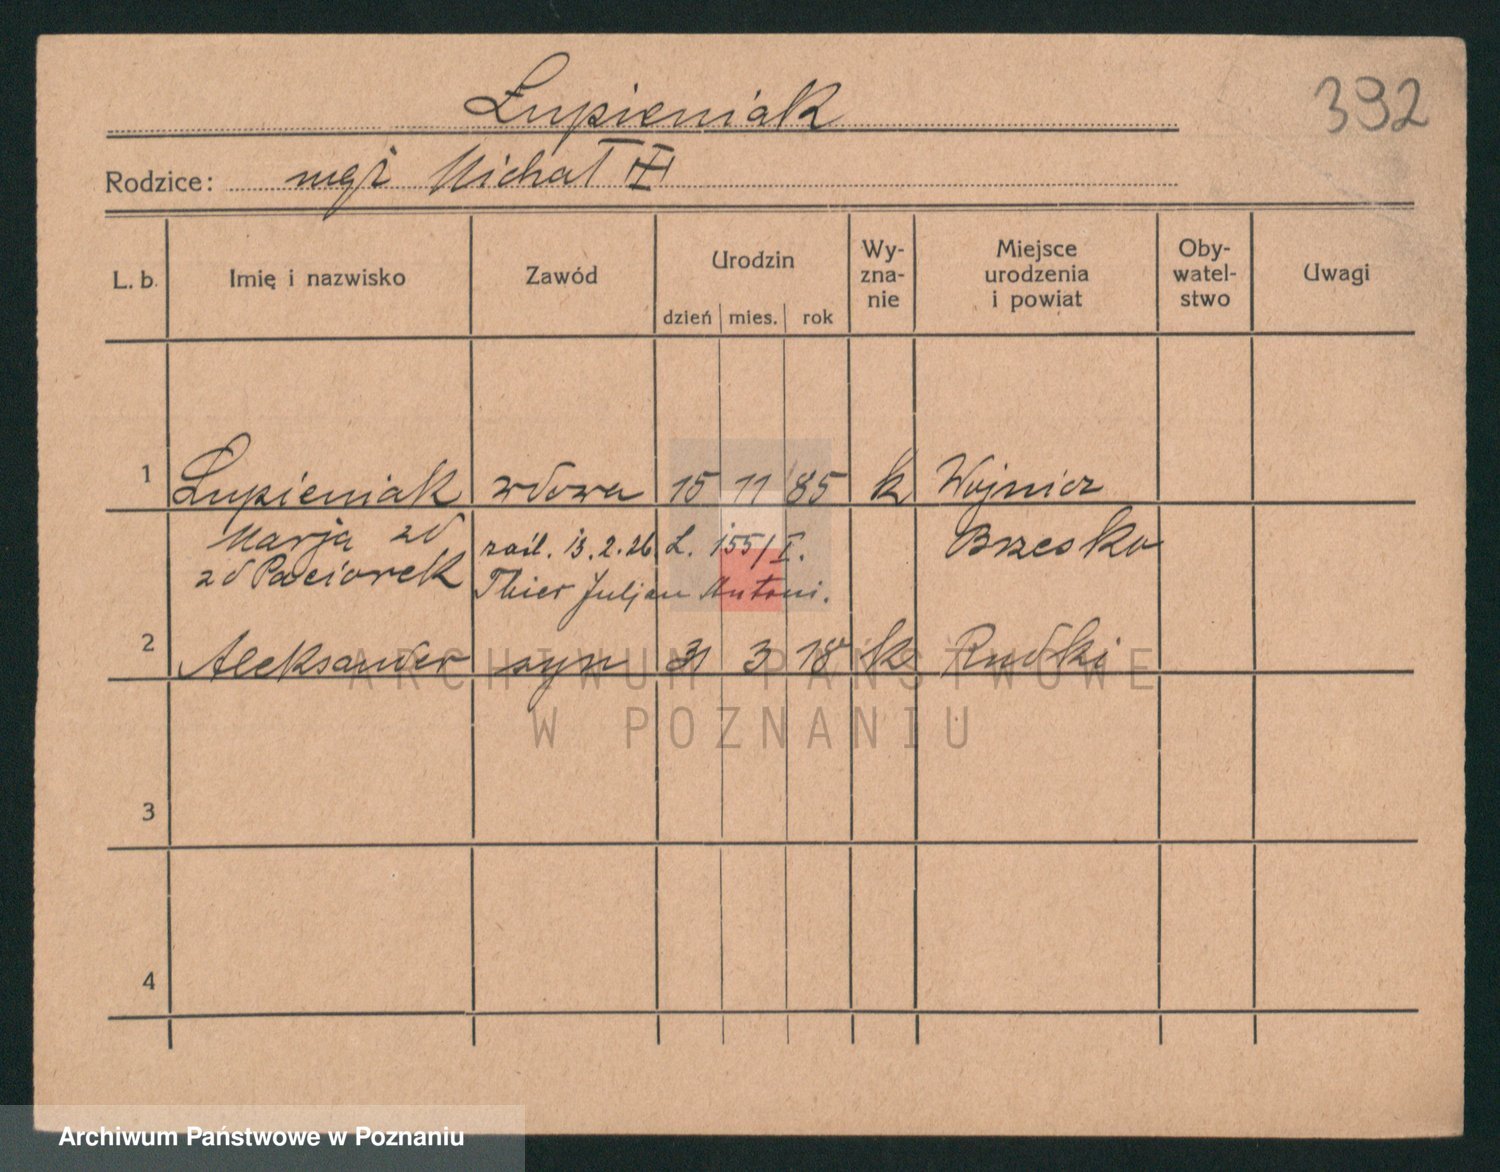 392
Łupieniak
Rodzice: mąż Michał
L. b. Imię i nazwisko Zawód Urodzin dzień mies. rok Wy-zna-nie Miejsce urodzenia i powiat Oby-watel-stwo Uwagi
1 Łupieniak wdowa 15 11 85 k Wojnicz
Marja zd Brzesko
zd Paciorek zaśl. 13.2.26 L. 155/I.
Thier Juljan Antoni.
2 Aleksander syn 31 3 18 k Rudki
3
4
ARCHIWUM PAŃSTWOWE
W POZNANIU
Archiwum Państwowe w Poznaniu